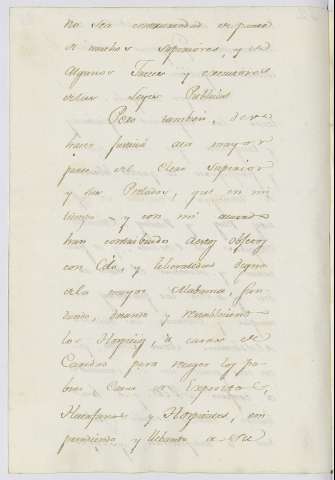 no ser comunidad
de muchos Superiores, y de
algunos Jueces y
de las Leyes Publicas
Pero tambien, devo
hacer justicia a la mayor
parte del Clero Superior
y sus Prelados, que en mi
tiempo y con mi acuerdo
han contribuido
con Celo, y liberalidad digna
de la mayor Alabanza, fun-
dando, dotando y restableciendo
los Hospicios, ó casas de
Caridad para recoger los po-
bres Casas de Expositos,
Huerfanos y Hospitales, em-
prendiendo, y llebando a su